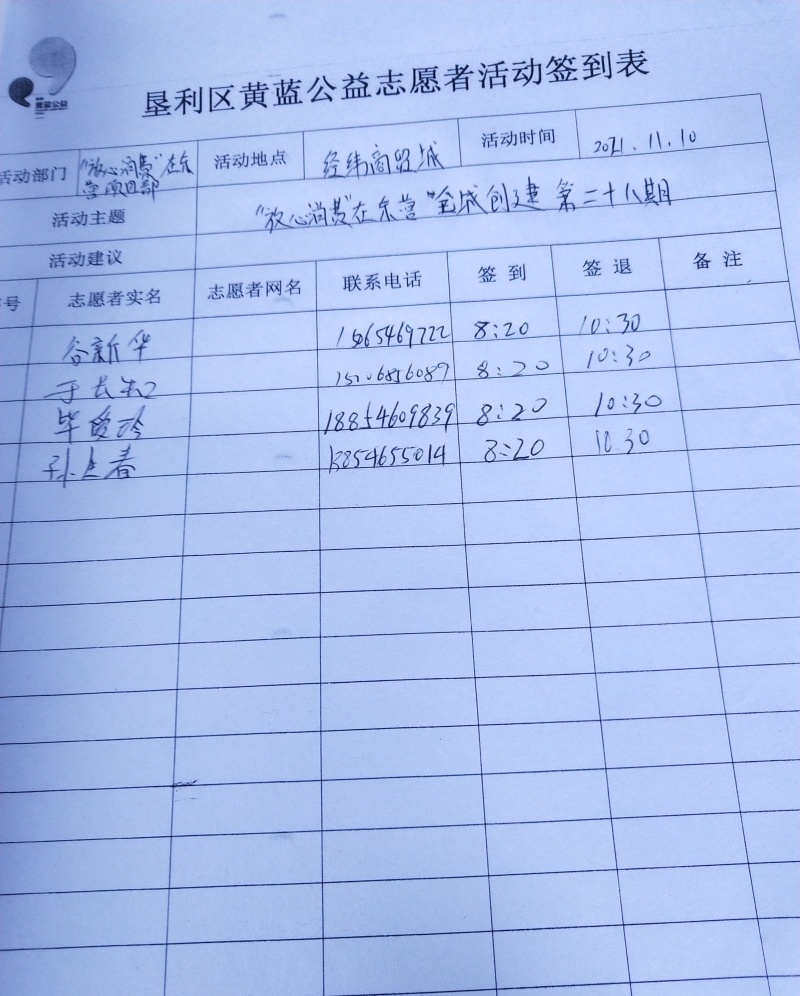 黄蓝公益
垦利区黄蓝公益志愿者活动签到表
活动部门 "放心消费"在东营项目部 活动地点 经纬商贸城 活动时间 2021.11.10
活动主题 "放心消费"在东营"全城创建 第二十八期
活动建议
号 志愿者实名 志愿者网名 联系电话 签到 签退 备注
谷新华 8:20 10:30
8:20 10:30
18854609839 8:20 10:30
13854655014 8:20 10 30